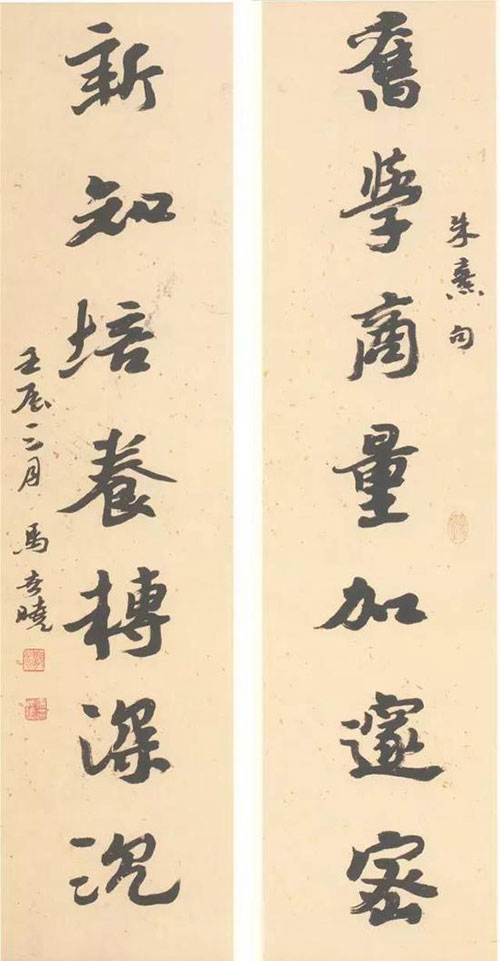 朱熹句
舊學商量加邃密
新知培養轉深沉
壬辰三月 馬世曉